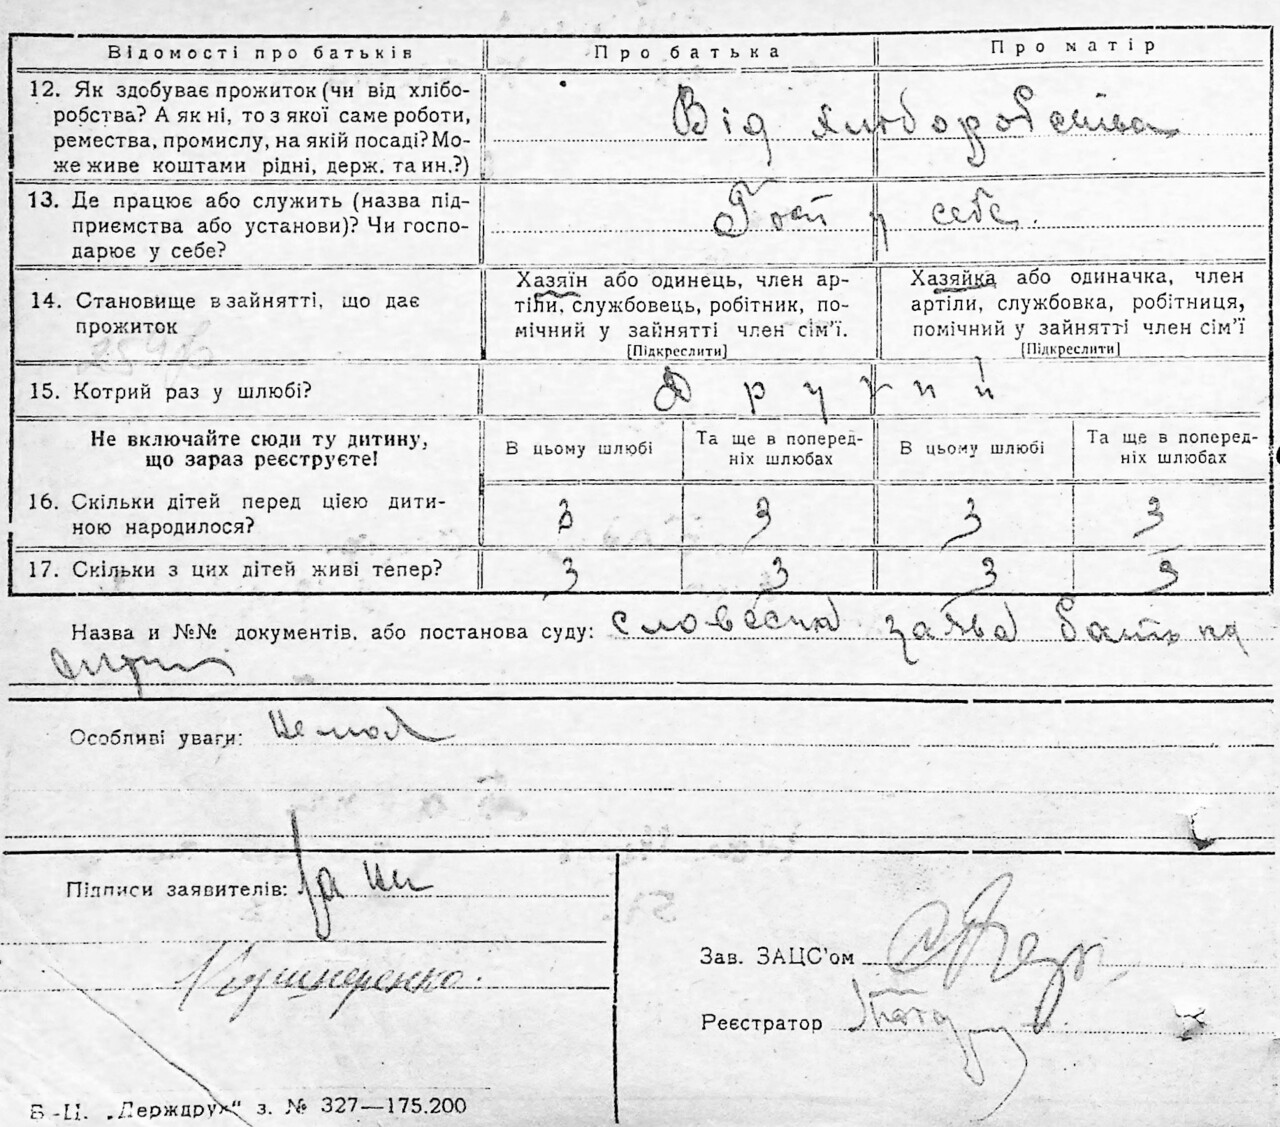 Відомості про батьків Про батька Про матір
12. Як здобуває прожиток (чи від хлібо-
робства? А як ні, то з якої саме роботи,
ремества, промислу, на якій посаді? Мо-
же живе коштами рідні, держ. та ин.?)
Від хліборобства
13. Де працює або служить (назва під-
приємства або установи)? Чи госпо-
дарює у себе?
Госп у себе.
14. Становище в зайнятті, що дає
прожиток
Хазяїн або одинець, член ар-
тіли, службовець, робітник, по-
мічний у зайнятті член сім’ї.
[Підкреслити]
Хазяйка або одиначка, член
артіли, службовка, робітниця,
помічний у зайнятті член сім’ї
[Підкреслити]
15. Котрий раз у шлюбі?
Другий
Не включайте сюди ту дитину,
що зараз реєструєте!
В цьому шлюбі
Та ще в поперед-
ніх шлюбах
В цьому шлюбі
Та ще в поперед-
ніх шлюбах
16. Скільки дітей перед цією дити-
ною народилося?
3 3 3 3
17. Скільки з цих дітей живі тепер?
3 3 3 3
Назва и №№ документів, або постанова суду: словесна заява батька
Особливі уваги: немає
Підписи заявителів:
Кушнеренко.
Зав. ЗАЦС’ом
Реєстратор
Б.-Ц. „Держдрук“ з. № 327—175.200